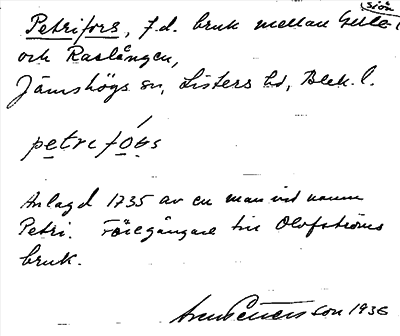 Petrifors, f.d. bruk mellan sjön
och Raslången,
Jämshögs sn, Listers hd, Blek. l.
petrifórs
Anlagd 1735 av en man vid namn
Petri. Föregångare till Olofströms
bruk.
1936